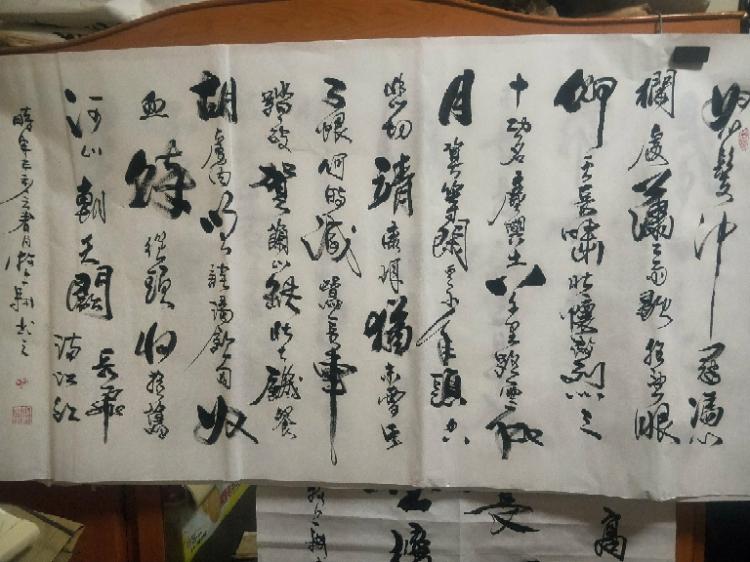 怒髮沖冠憑
欄處瀟瀟雨歇抬望眼
仰天長嘯壯懷激烈三
十功名塵與土八千里路雲和
月莫等閑白了少年頭空
悲切靖康恥猶未雪臣
子恨何時滅駕長車
踏破賀蘭山缺壯志饑餐
胡虜肉笑談渴飲匈奴
血待從頭收拾舊
河山朝天闕岳飛
滿江紅
高
受